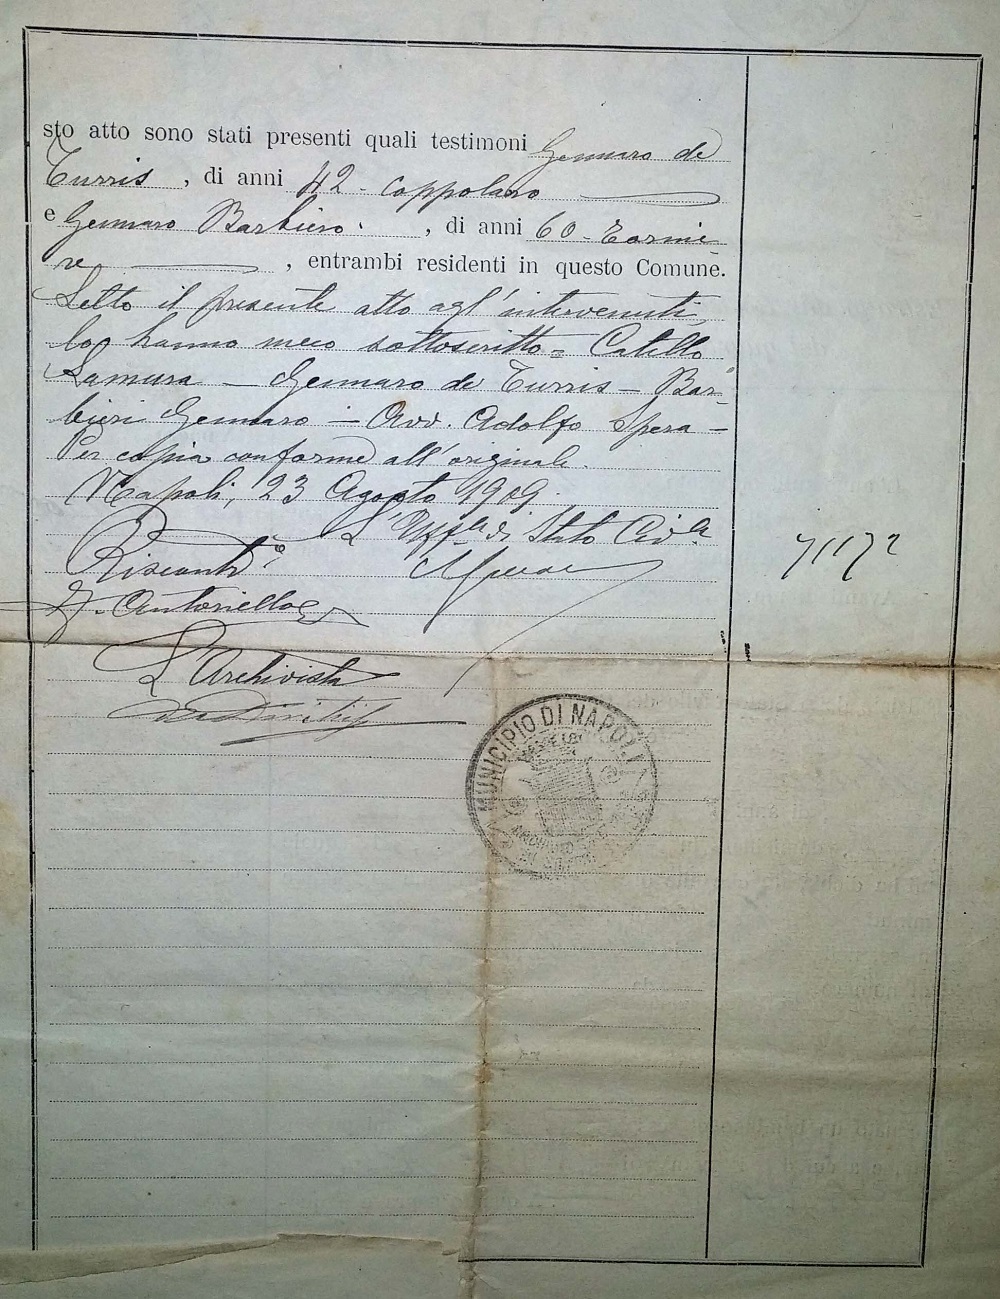 sto atto sono stati presenti quali testimoni Gennaro de
Turris, di anni 42 - coppolaro
e Gennaro Barbiero, di anni 60 - Tornie-
re, entrambi residenti in questo Comune.
Letto il presente atto agl'intervenuti
lo hanno meco sottoscritto = Catello
Lamura — Gennaro de Turris — Bar-
bieri Gennaro — Avv. Adolfo Spera —
Per copia conforme all'originale.
Napoli, 23 Agosto 1909.
L'Uff.le di Stato Civ.le
Riscontr.o
G. Antoriello
L'Archivista
MUNICIPIO DI NAPOLI